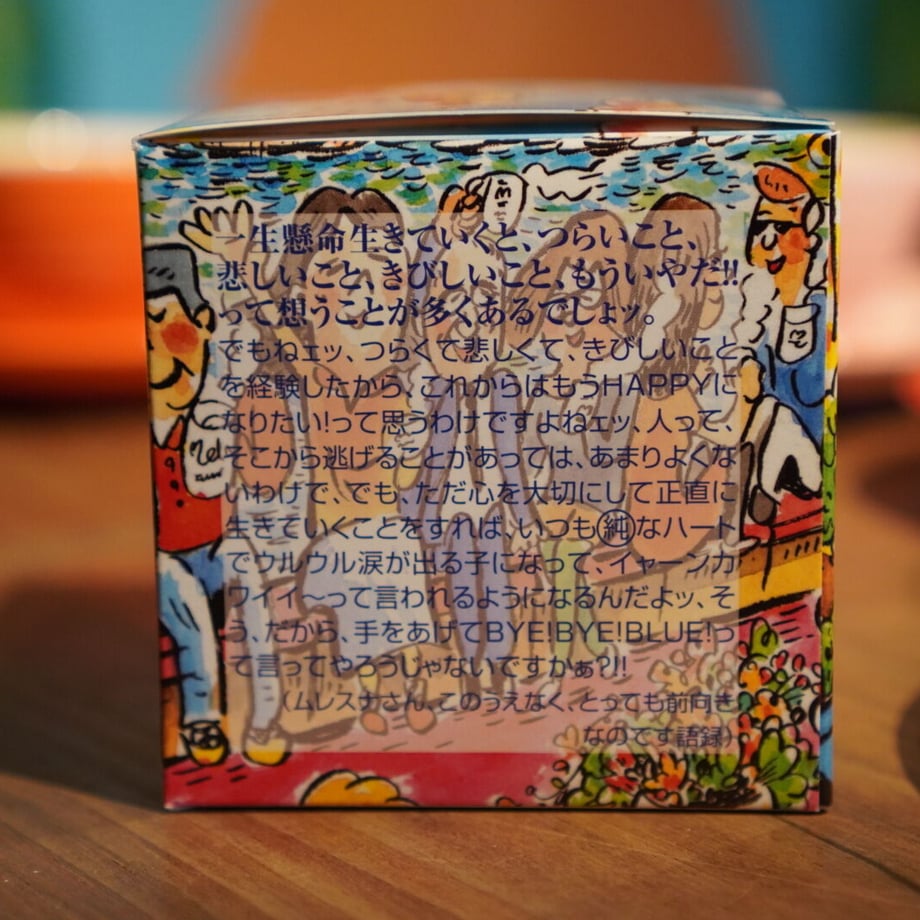 一生懸命生きていくと、つらいこと、
悲しいこと、きびしいこと、もういやだ!!
って想うことが多くあるでしょッ。
でもねェッ、つらくて悲しくて、きびしいこと
を経験したから、これからはもうHAPPYに
なりたい!って思うわけですよねェッ、人って、
そこから逃げることがあっては、あまりよくな
いわけで、でも、ただ心を大切にして正直に
生きていくことをすれば、いつも㊋なハート
でウルウル涙が出る子になって、イャーンカ
ワイイ〜って言われるようになるんだよッ、そ
う、だから、手をあげてBYE!BYE!BLUE!っ
て言ってやろうじゃないですかぁ?!!
(ムレスナさん、このうえなく、とっても前向き
なのです語録)